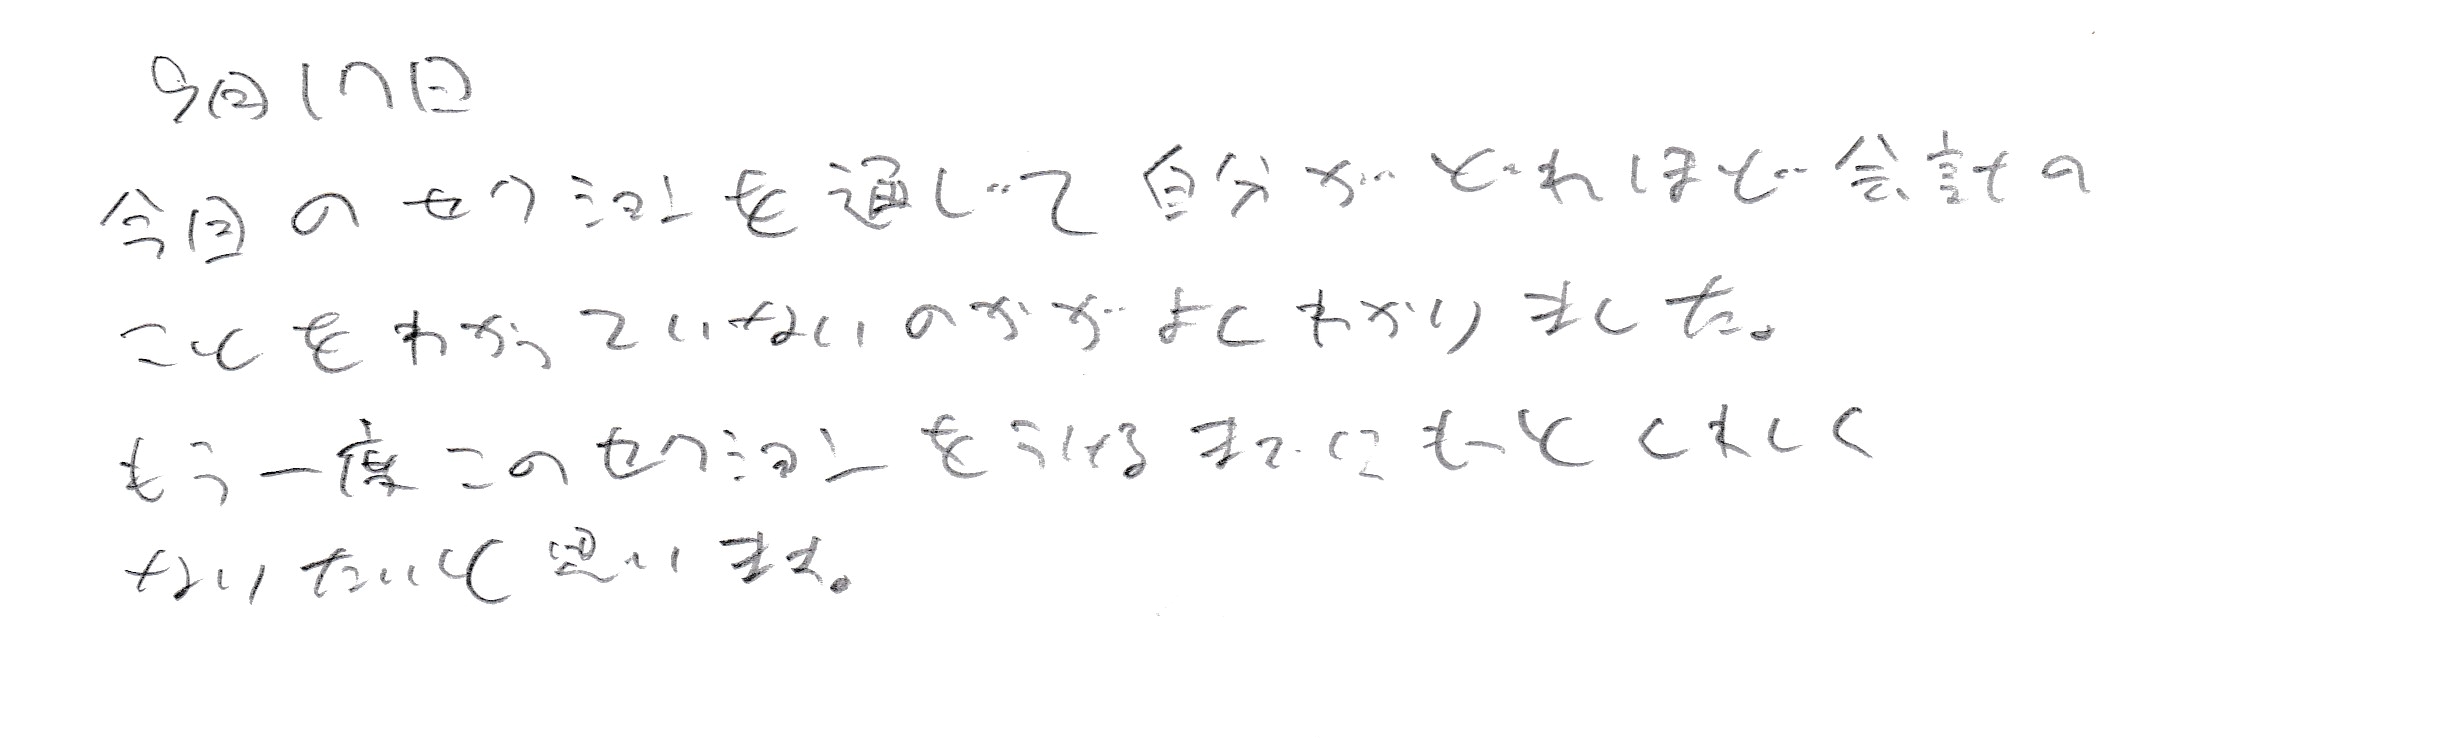 9回17日
今回のセクションを通じて自分がどれほど会計の
ことをわかっていないのかがよくわかりました。
もう一度このセクションをうけるまでにもっとくわしく
なりたいと思います。